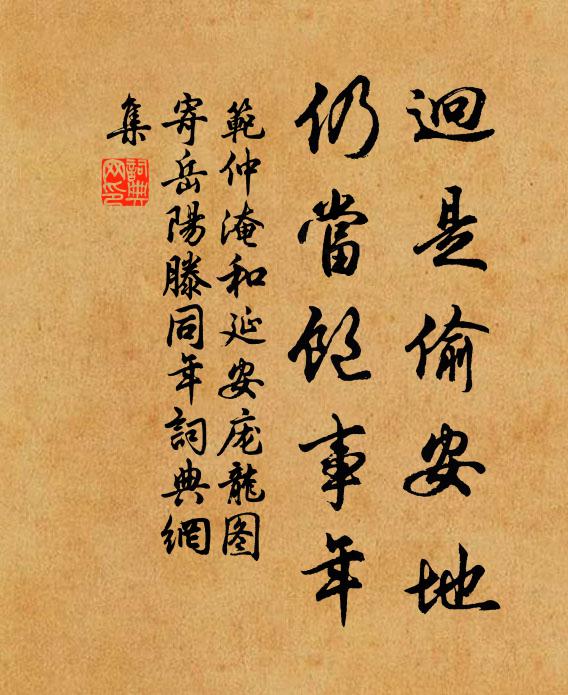 迥是偷安地
仍當飽事年
範仲淹和延安庞龍图
寄岳陽滕同年詞典網
集
詞典網印